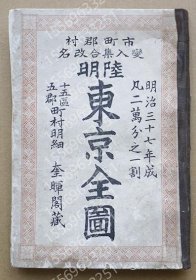 市町郡村
變入集合改名
陸明
明治三十七年成
凡二萬分之一割
東京全圖
十五區
五郡
町村明細
奎暉閣藏